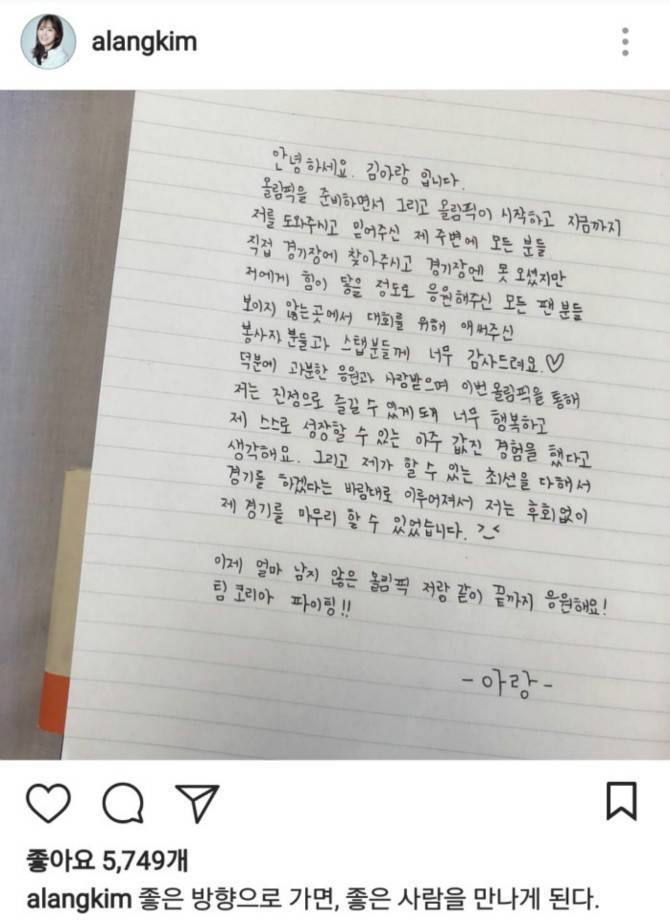 alangkim
안녕하세요. 김아랑 입니다.
올림픽을 준비하면서 그리고 올림픽이 시작하고 지금까지
저를 도와주시고 믿어주신 제 주변에 모든 분들
직접 경기장에 찾아주시고 경기장엔 못 오셨지만
저에게 힘이 닿을 정도로 응원해주신 모든 팬 분들
보이지 않는곳에서 대회를 위해 애써주신
봉사자 분들과 스탭분들께 너무 감사드려요.♡
덕분에 과분한 응원과 사랑받으며 이번 올림픽을 통해
저는 진정으로 즐길 수 있게 되게 너무 행복하고
제 스스로 성장할 수 있는 아주 값진 경험을 했다고
생각해요. 그리고 제가 할 수 있는 최선을 다해서
경기를 하겠다는 바람대로 이루어져서 저는 후회없이
제 경기를 마무리 할 수 있었습니다.
이제 얼마 남지 않은 올림픽 저랑 같이 끝까지 응원해요!
팀 코리아 파이팅!!
-아랑-
좋아요 5,749개
alangkim 좋은 방향으로 가면, 좋은 사람을 만나게 된다.